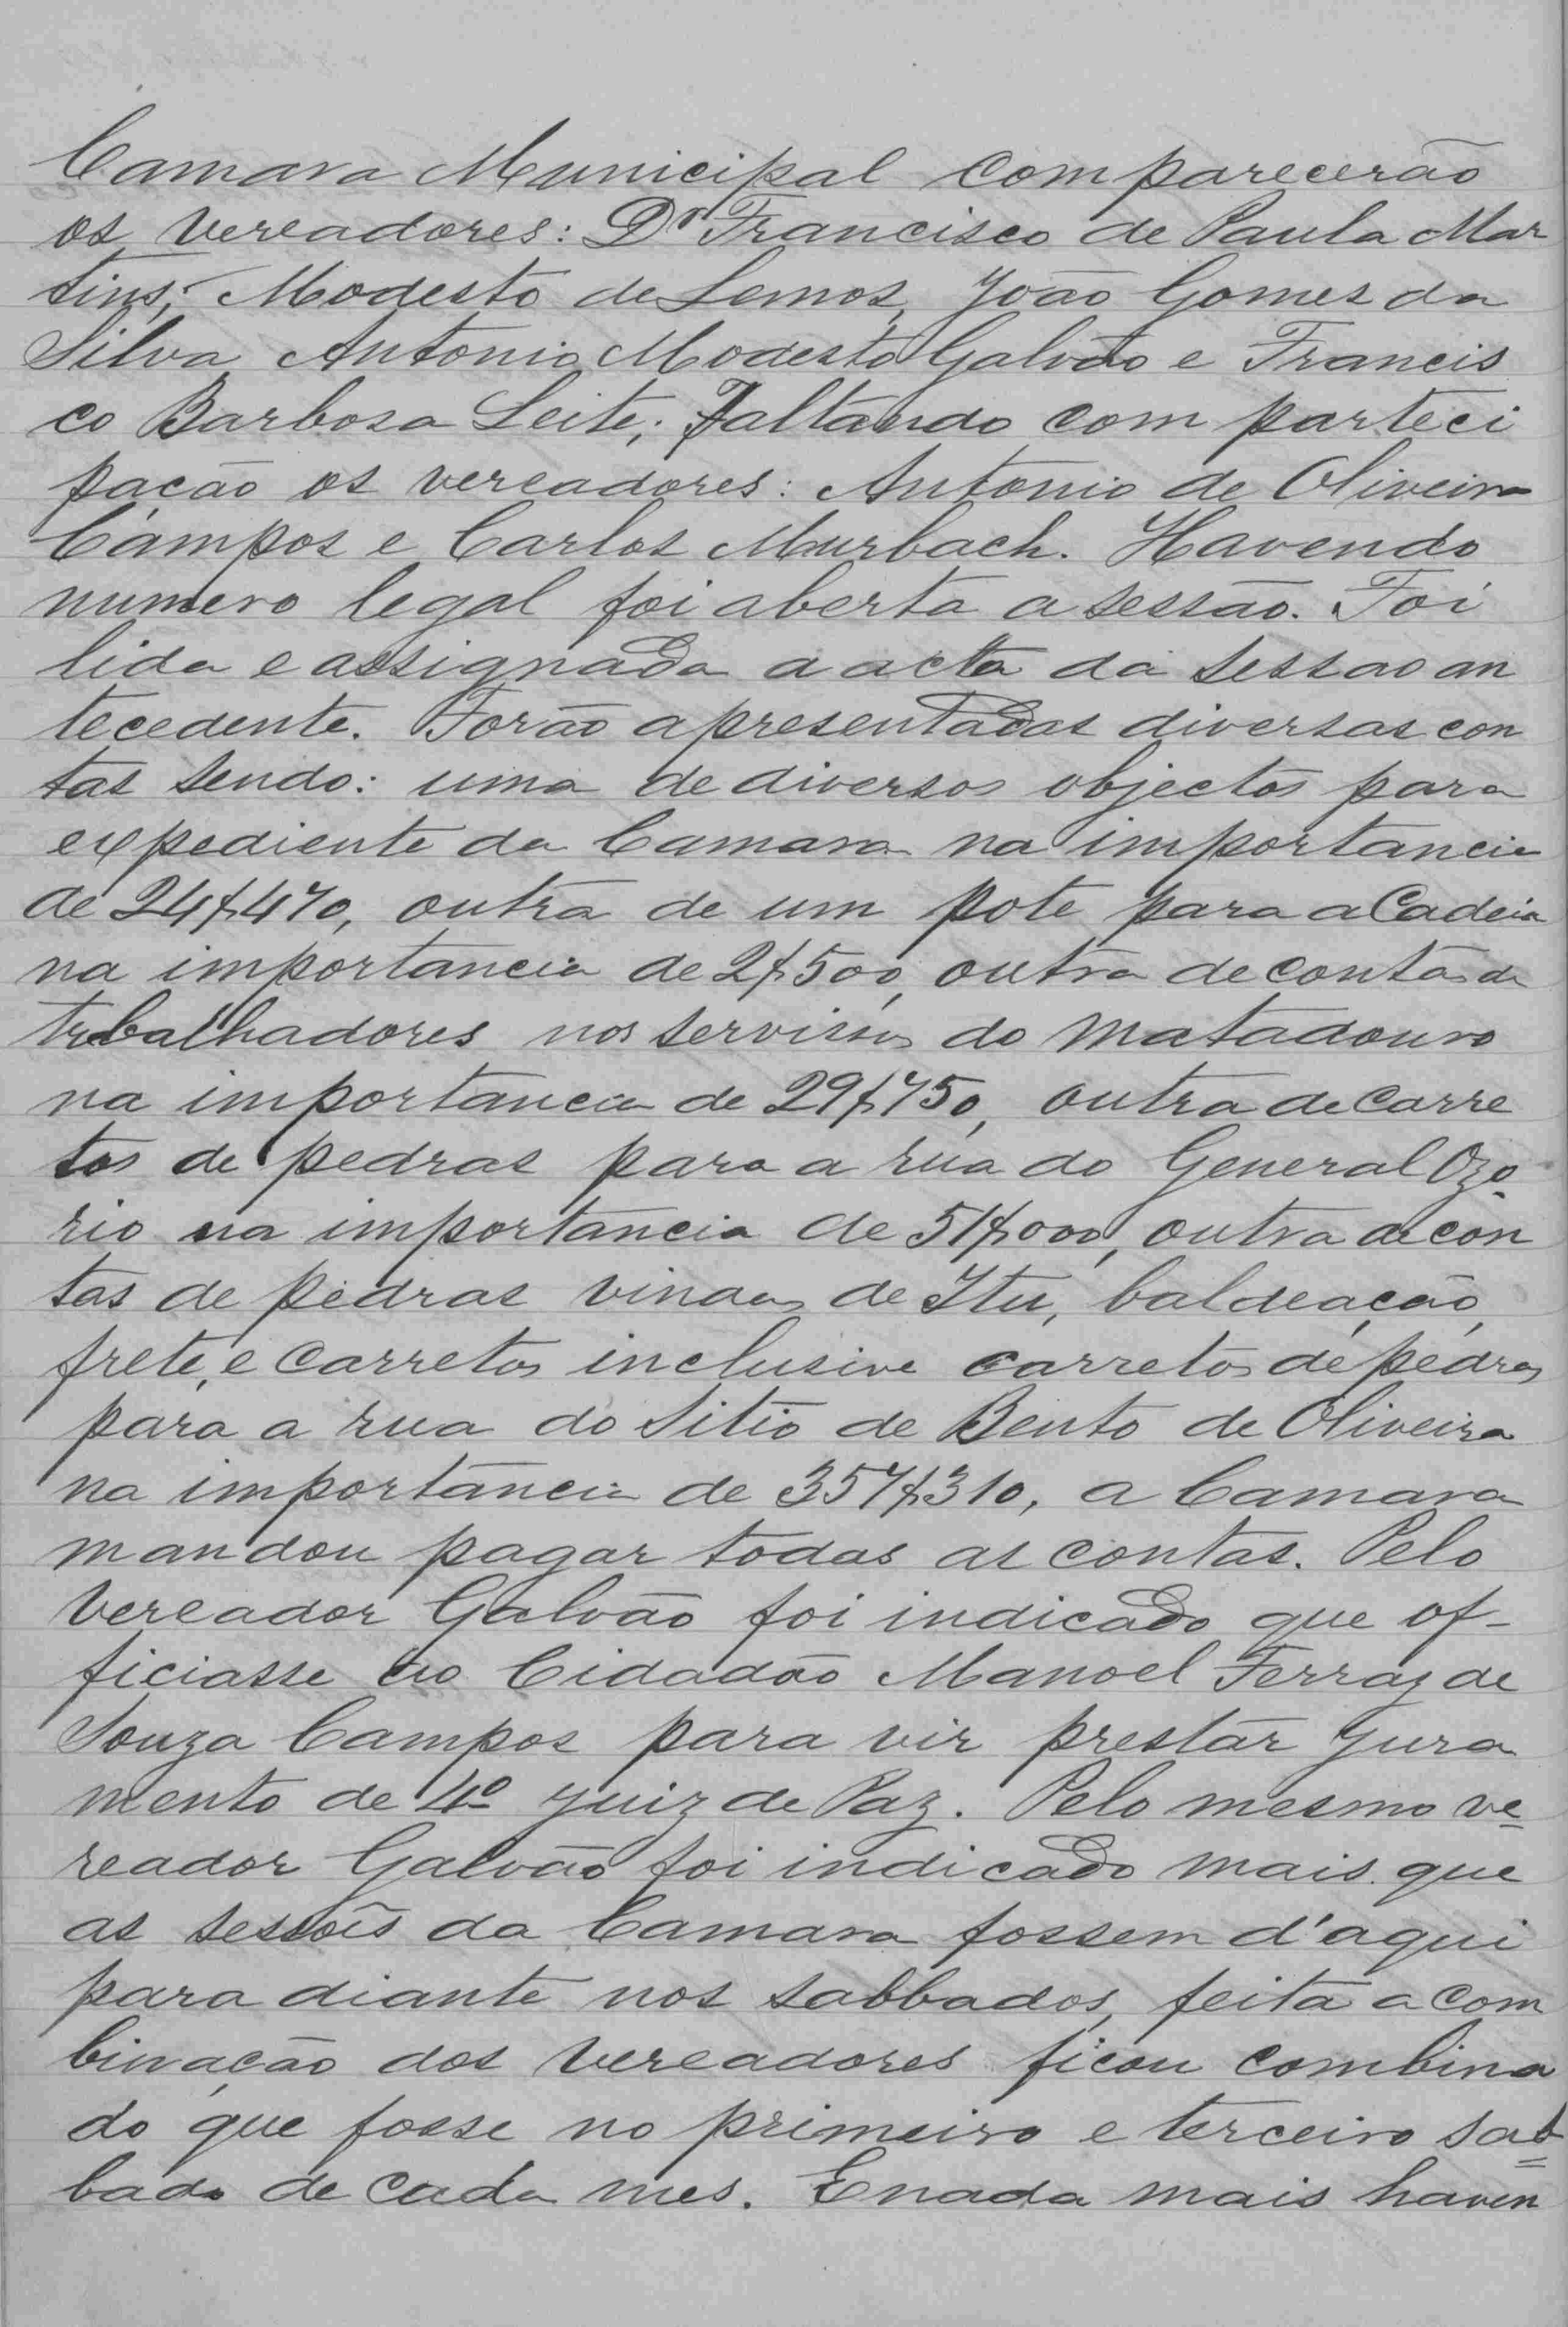 Camara Municipal comparecerão
os vereadores: Dr Francisco de Paula Mar
tins, Modesto de Lemos, João Gomes da
Silva, Antonio Modesto Galvão e Francis
co Barbosa Leite; Faltando com parteci
pação os vereadores: Antonio de Oliveira
Campos e Carlos Murbach. Havendo
numero legal foi aberta a sessão. Foi
lida e assignada a acta da sessão an
tecedente. Forão apresentadas diversas con
tas sendo: uma de diversos objectos para
expediente da Camara na importancia
de 24$470, outra de um pote para a Cadeia
na importancia de 2$500, outra de contas de
trabalhadores nos servissos do matadouro
na importancia de 29$750, outra de carre
tos de pedras para a rua do General Ozo
rio na importancia de 51$000, outra de con
tas de pedras vindas de Itu, baldeação,
frete, e carretos inclusive carretos de pedras
para a rua do Sitio de Bento de Oliveira
na importancia de 357$310, a Camara
mandou pagar todas as contas. Pelo
vereador Galvão foi indicado que of-
ficiasse ao Cidadão Manoel Ferraz de
Souza Campos para vir prestar jura
mento de 4º juiz de Paz. Pelo mesmo ve
reador Galvão foi indicado mais que
as sessoês da Camara fossem d'aqui
para diante nos sabbados, feita a com
binação dos vereadores ficou combina
do que fosse no primeiro e terceiro sab=
bado de cada mes. E nada mais haven